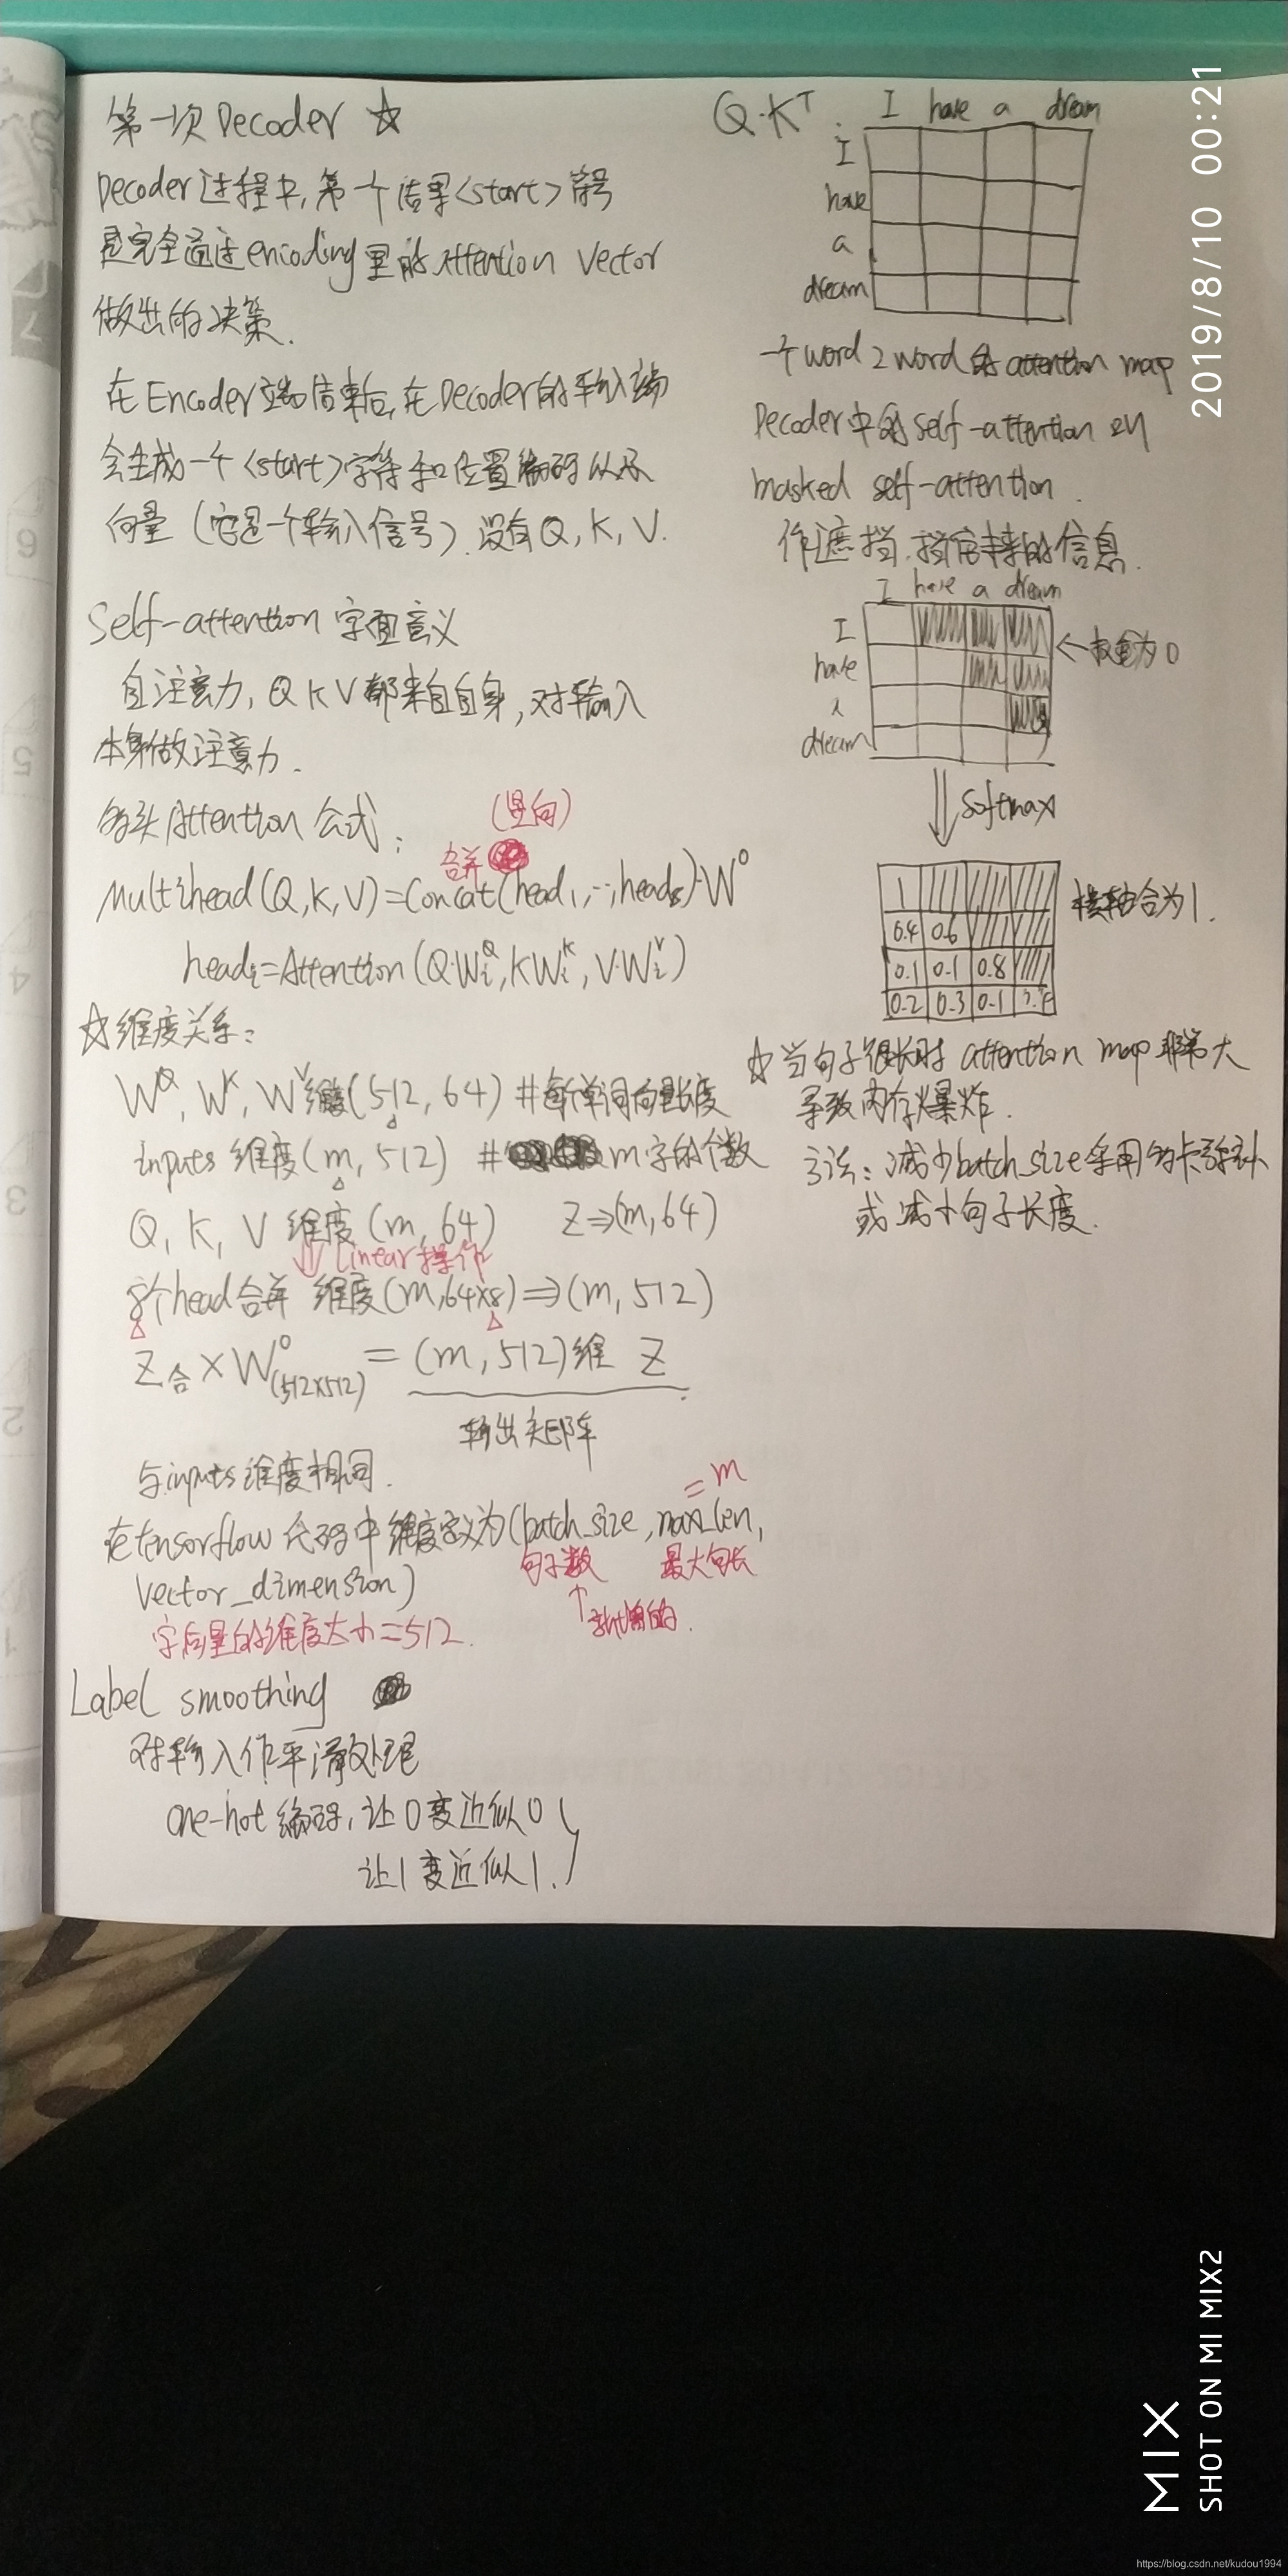 第一次Decoder ☆
Decoder过程中,第一个结果<start>符号
是完全通过encoding里的attention vector
做出的决策.
在Encoder端结束后,在Decoder的输入端
会生成一个<start>字符和位置编码以及
向量(它是一个输入信号).没有Q,K,V.
Self-attention 字面意义
自注意力,QKV都来自自身,对输入
本身做注意力.
多头Attention公式:
(竖向)
合并
Multihead(Q,K,V)=Concat(head1,…,head8)·W^O
headi=Attention(Q·Wi^Q,KWi^K,V·Wi^V)
☆维度关系:
W^Q, W^K, W^V维度(512,64) #每个单词向量长度
inputs 维度(m,512) # m字的个数
Q, K, V 维度(m,64) Z⇒(m,64)
⇓ Linear操作
8个head合并 维度(m,64×8)⇒(m,512)
Z合×W^O(512×512)=(m,512)维 Z
输出矩阵
与inputs维度相同.
=m
在tensorflow代码中维度定义为(batch_size,max_len,
句子数 最大句长
vector_dimension)
↑
字向量的维度大小=512.
Label smoothing
对输入作平滑处理
one-hot编码,让0变近似0
让1变近似1.
Q·K^T.
I have a dream
I
have
a
dream
一个word2word的attention map
Decoder中的self-attention
masked self-attention.
作遮挡.挡住未来的信息.
I have a dream
I ←权重为0
have
a
dream
⇓ softmax
1 横轴合为1.
0.4 0.6
0.1 0.1 0.8
0.2 0.3 0.1
☆当句子很长时 attention map 非常大
导致内存爆炸.
方法:减少batch_size采用多卡
或减小句子长度.
2019/8/10 00:21
MIX
SHOT ON MI MIX2
https://blog.csdn.net/kudou1994